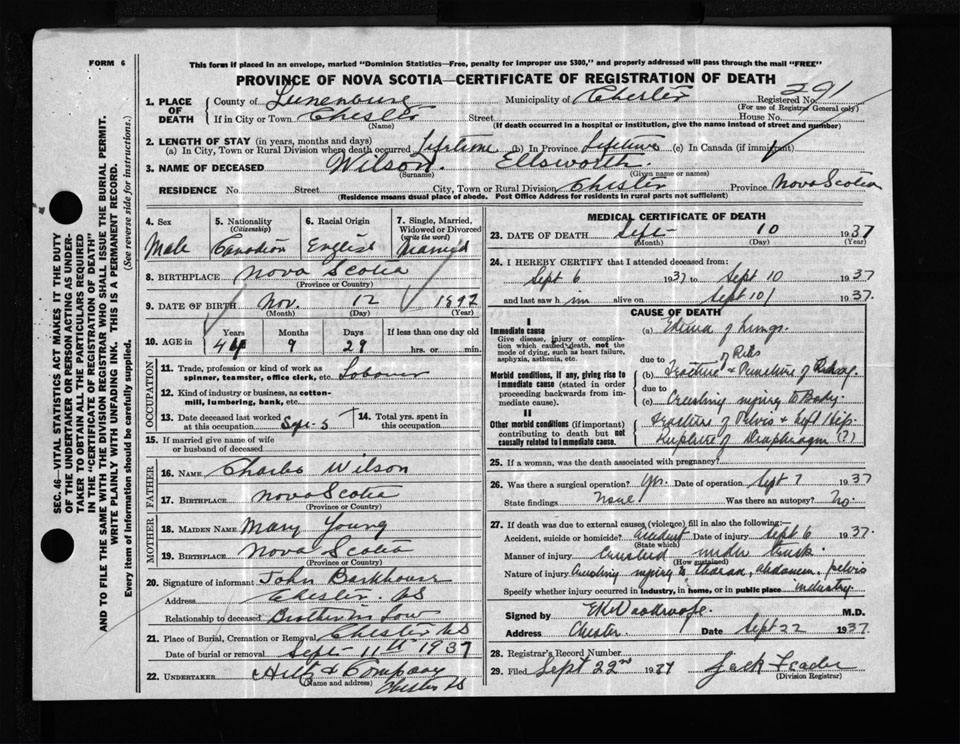 FORM 6
This form if placed in an envelope, marked "Dominion Statistics—Free, penalty for improper use $300," and properly addressed will pass through the mail "FREE"
PROVINCE OF NOVA SCOTIA—CERTIFICATE OF REGISTRATION OF DEATH
SEC. 46—VITAL STATISTICS ACT MAKES IT THE DUTY
OF THE UNDERTAKER OR PERSON ACTING AS UNDER-
TAKER TO OBTAIN ALL THE PARTICULARS REQUIRED
IN THE "CERTIFICATE OF REGISTRATION OF DEATH"
AND TO FILE THE SAME WITH THE DIVISION REGISTRAR WHO SHALL ISSUE THE BURIAL PERMIT.
WRITE PLAINLY WITH UNFADING INK. THIS IS A PERMANENT RECORD.
Every item of Information should be carefully supplied. (See reverse side for instructions.)
1. PLACE OF DEATH County of Lunenburg Municipality of Chester Registered No. 291
(For use of Registrar General only)
If in City or Town Chester Street House No.
(Name) (If death occurred in a hospital or institution, give the name instead of street and number)
2. LENGTH OF STAY (in years, months and days)
(a) In City, Town or Rural Division where death occurred Lifetime (b) In Province Lifetime (c) In Canada (if immigrant)
3. NAME OF DECEASED Wilson Ellsworth
(Surname) (Given name or names)
RESIDENCE No. Street City, Town or Rural Division Chester Province Nova Scotia
(Residence means usual place of abode. Post Office Address for residents in rural parts not sufficient)
4. Sex Male
5. Nationality (Citizenship) Canadian
6. Racial Origin English
7. Single, Married, Widowed or Divorced (write the word) Married
8. BIRTHPLACE Nova Scotia
(Province or Country)
9. DATE OF BIRTH Nov. 12 1892
(Month) (Day) (Year)
10. AGE in Years Months Days If less than one day old
44 9 29 hrs. or min.
OCCUPATION
11. Trade, profession or kind of work as spinner, teamster, office clerk, etc. Laborer
12. Kind of industry or business, as cotton-mill, lumbering, bank, etc.
13. Date deceased last worked at this occupation Sept. 5
14. Total yrs. spent in this occupation
15. If married give name of wife or husband of deceased
FATHER
16. NAME Charles Wilson
17. BIRTHPLACE Nova Scotia
(Province or Country)
MOTHER
18. MAIDEN NAME Mary Young
19. BIRTHPLACE Nova Scotia
(Province or Country)
20. Signature of informant John Barkhouse
Address Chester NS
Relationship to deceased Brother in Law
21. Place of Burial, Cremation or Removal Chester NS
Date of burial or removal Sept 11th 1937
22. UNDERTAKER & Company
(Name and address) Chester NS
MEDICAL CERTIFICATE OF DEATH
23. DATE OF DEATH Sept 10 1937
(Month) (Day) (Year)
24. I HEREBY CERTIFY that I attended deceased from:
Sept 6 1937 to Sept 10 1937
and last saw him alive on Sept 10 1937.
CAUSE OF DEATH
I
Immediate cause
Give disease, injury or complication which caused death, not the mode of dying, such as heart failure, asphyxia, asthenia, etc.
(a) Edema of Lungs.
due to
Morbid conditions, if any, giving rise to immediate cause (stated in order proceeding backwards from immediate cause).
(b) Fracture of Ribs & Puncture of
due to
(c) Crushing injury to Body.
II
Other morbid conditions (if important) contributing to death but not causally related to immediate cause.
Fracture of Pelvis & Left Hip.
Rupture of Diaphragm (?)
25. If a woman, was the death associated with pregnancy?
26. Was there a surgical operation? Yes. Date of operation Sept 7 1937
State findings None Was there an autopsy? No.
27. If death was due to external causes (violence) fill in also the following:
Accident, suicide or homicide? Accident Date of injury Sept 6 1937.
(State which)
Manner of injury Crushed under truck.
(How sustained)
Nature of injury Crushing injury to thorax, abdomen, pelvis
Specify whether injury occurred in industry, in home, or in public place industry
Signed by M.D.
Address Chester. Date Sept 22 1937.
28. Registrar's Record Number
29. Filed Sept 22nd 1937 Jack
(Division Registrar)